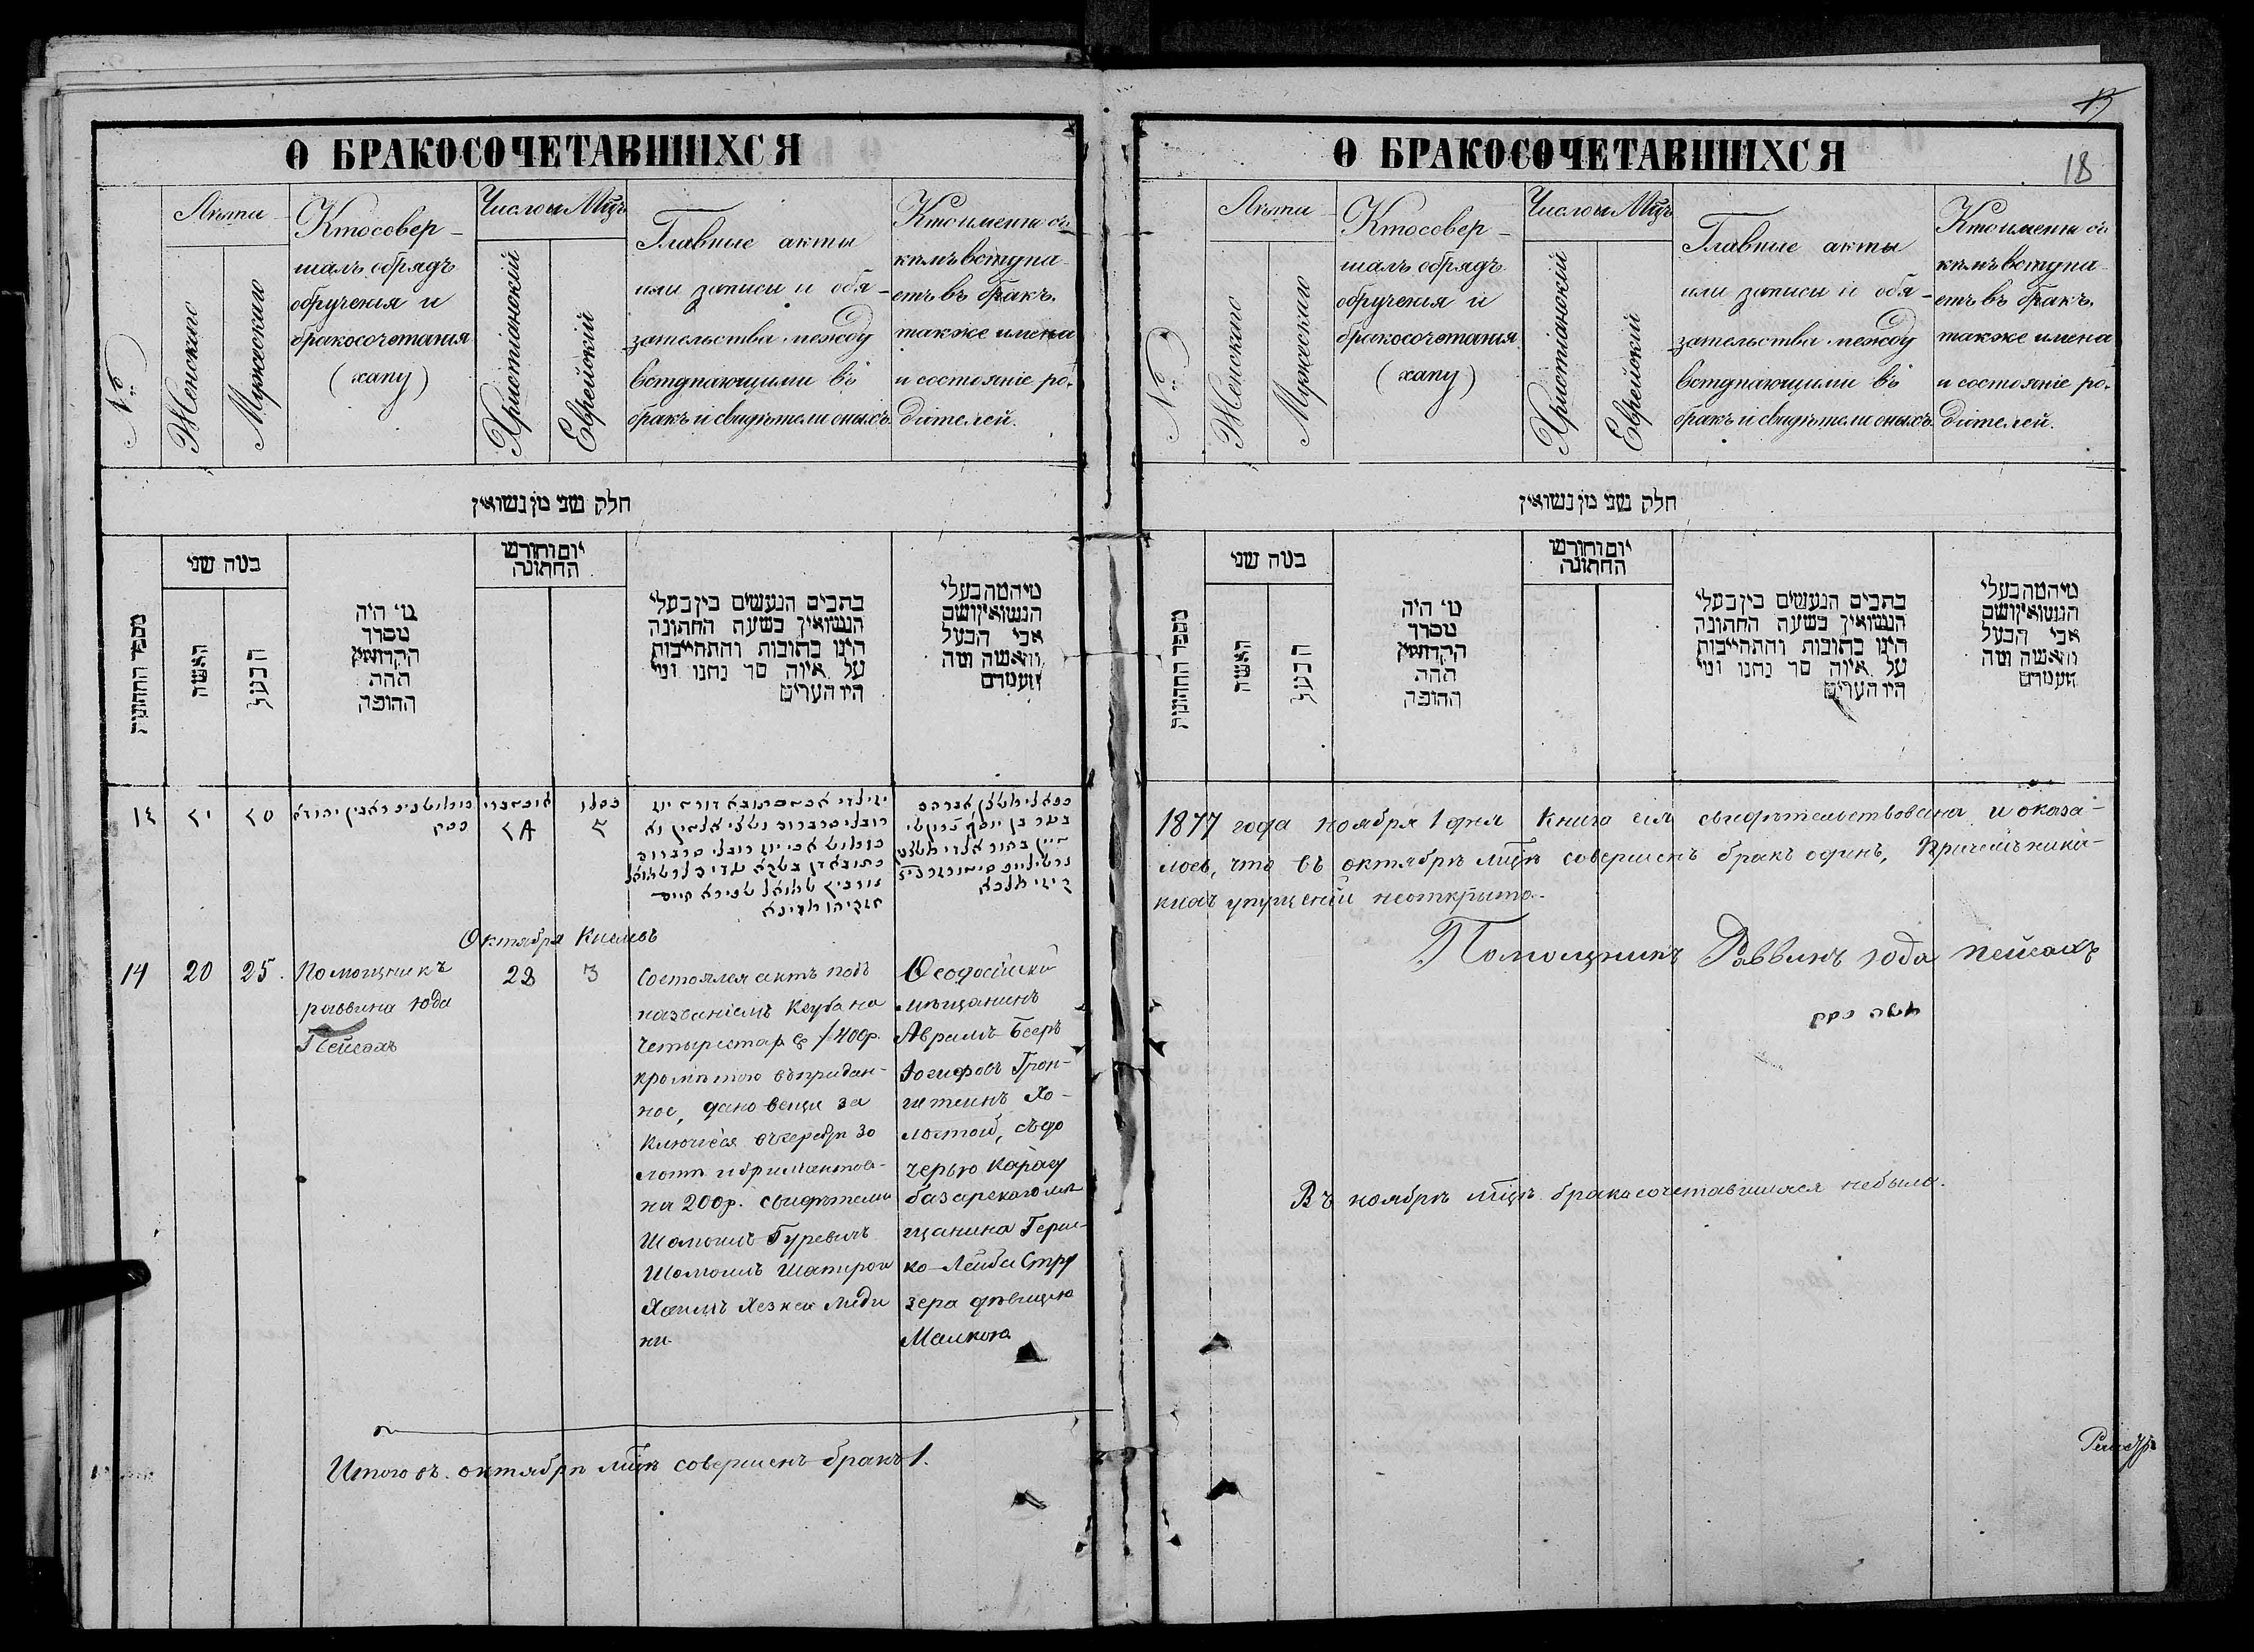 О БРАКОСОЧЕТАВШИХСЯ
№
Лѣта
Женскаго
Мужескаго
Кто совер-
шалъ обрядъ
обрученія и
бракосочетанія
(хапу)
Число и Мцъ
Христіанскій
Еврейскій
Главные акты
или записи и обя-
зательства между
вступающими въ
бракъ и свидѣтели оныхъ.
Кто именно съ
кѣмъ вступа-
етъ въ бракъ.
также имена
и состояніе ро-
дителей.
חלק שני מן נשואין
מספר החתונות
במה שני
האשה
הבעל
מי היה
מסדר
הקדושין
תחת
החופה
יום וחודש
החתונה
כתבים הנעשים בין בעלי
הנשואין בשעת החתונה
היינו כתובות והתחייבות
על איזה סך נתנו ומי
היו העדים
מי המה בעלי
הנשואין ושם
אבי הבעל
והאשה ומה
מעמדם
Октября Кислевъ
14
20
25.
Помощникъ
раввина Юда
Пейсахъ
28
3
Состоялся актъ подъ
названіемъ Кетуба на
Четыреста р с /400р.
кромѣ того въ придан-
ное, дано вещи за
ключ. въ серебрѣ зо
лотѣ и бриліантов-
на 200р. свидѣтели
Шамоилъ Гуревичъ
Шомоилъ Шапироа
Хаимъ Хезкея Меди
ни
Ѳеодосійскій
мѣщанинъ
Аврамъ Бееръ
Іосифовъ Грон-
штейнъ Хо-
лостой, съ до
черью Карасу
базарскаго мѣ
щанина Герш-
ко-Лейба Стру
зера дѣвицею
Малкою
Итого въ октябрѣ мцѣ совершенъ бракъ 1.
О БРАКОСОЧЕТАВШИХСЯ
18
№
Лѣта
Женскаго
Мужескаго
Кто совер-
шалъ обрядъ
обрученія и
бракосочетанія
(хапу)
Число и Мцъ
Христіанскій
Еврейскій
Главные акты
или записи и обя-
зательства между
вступающими въ
бракъ и свидѣтели оныхъ.
Кто именно съ
кѣмъ вступа-
етъ въ бракъ.
также имена
и состояніе ро-
дителей.
חלק שני מן נשואין
מספר החתונות
במה שני
האשה
הבעל
מי היה
מסדר
הקדושין
תחת
החופה
יום וחודש
החתונה
כתבים הנעשים בין בעלי
הנשואין בשעת החתונה
היינו כתובות והתחייבות
על איזה סך נתנו ומי
היו העדים
מי המה בעלי
הנשואין ושם
אבי הבעל
והאשה ומה
מעמדם
1877 года ноября 1 дня Книга сія свидѣтельствована и оказа-
лось, что въ октябрѣ мцѣ совершенъ бракъ одинъ, причемъ ника-
кихъ упущеній неоткрыто.
Помощникъ Раввинъ Юда Пейсахъ
Въ ноябрѣ мцѣ бракосочетавшихся небыло.